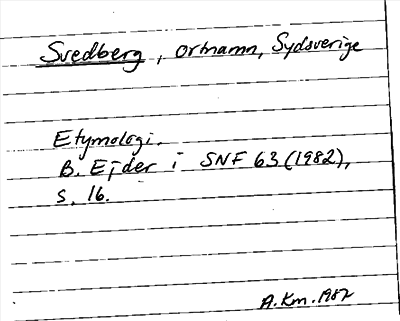 Svedberg, ortnamn, Sydsverige
Etymologi.
B. Ejder i SNF 63 (1982),
s. 16.
A. Km. 1982